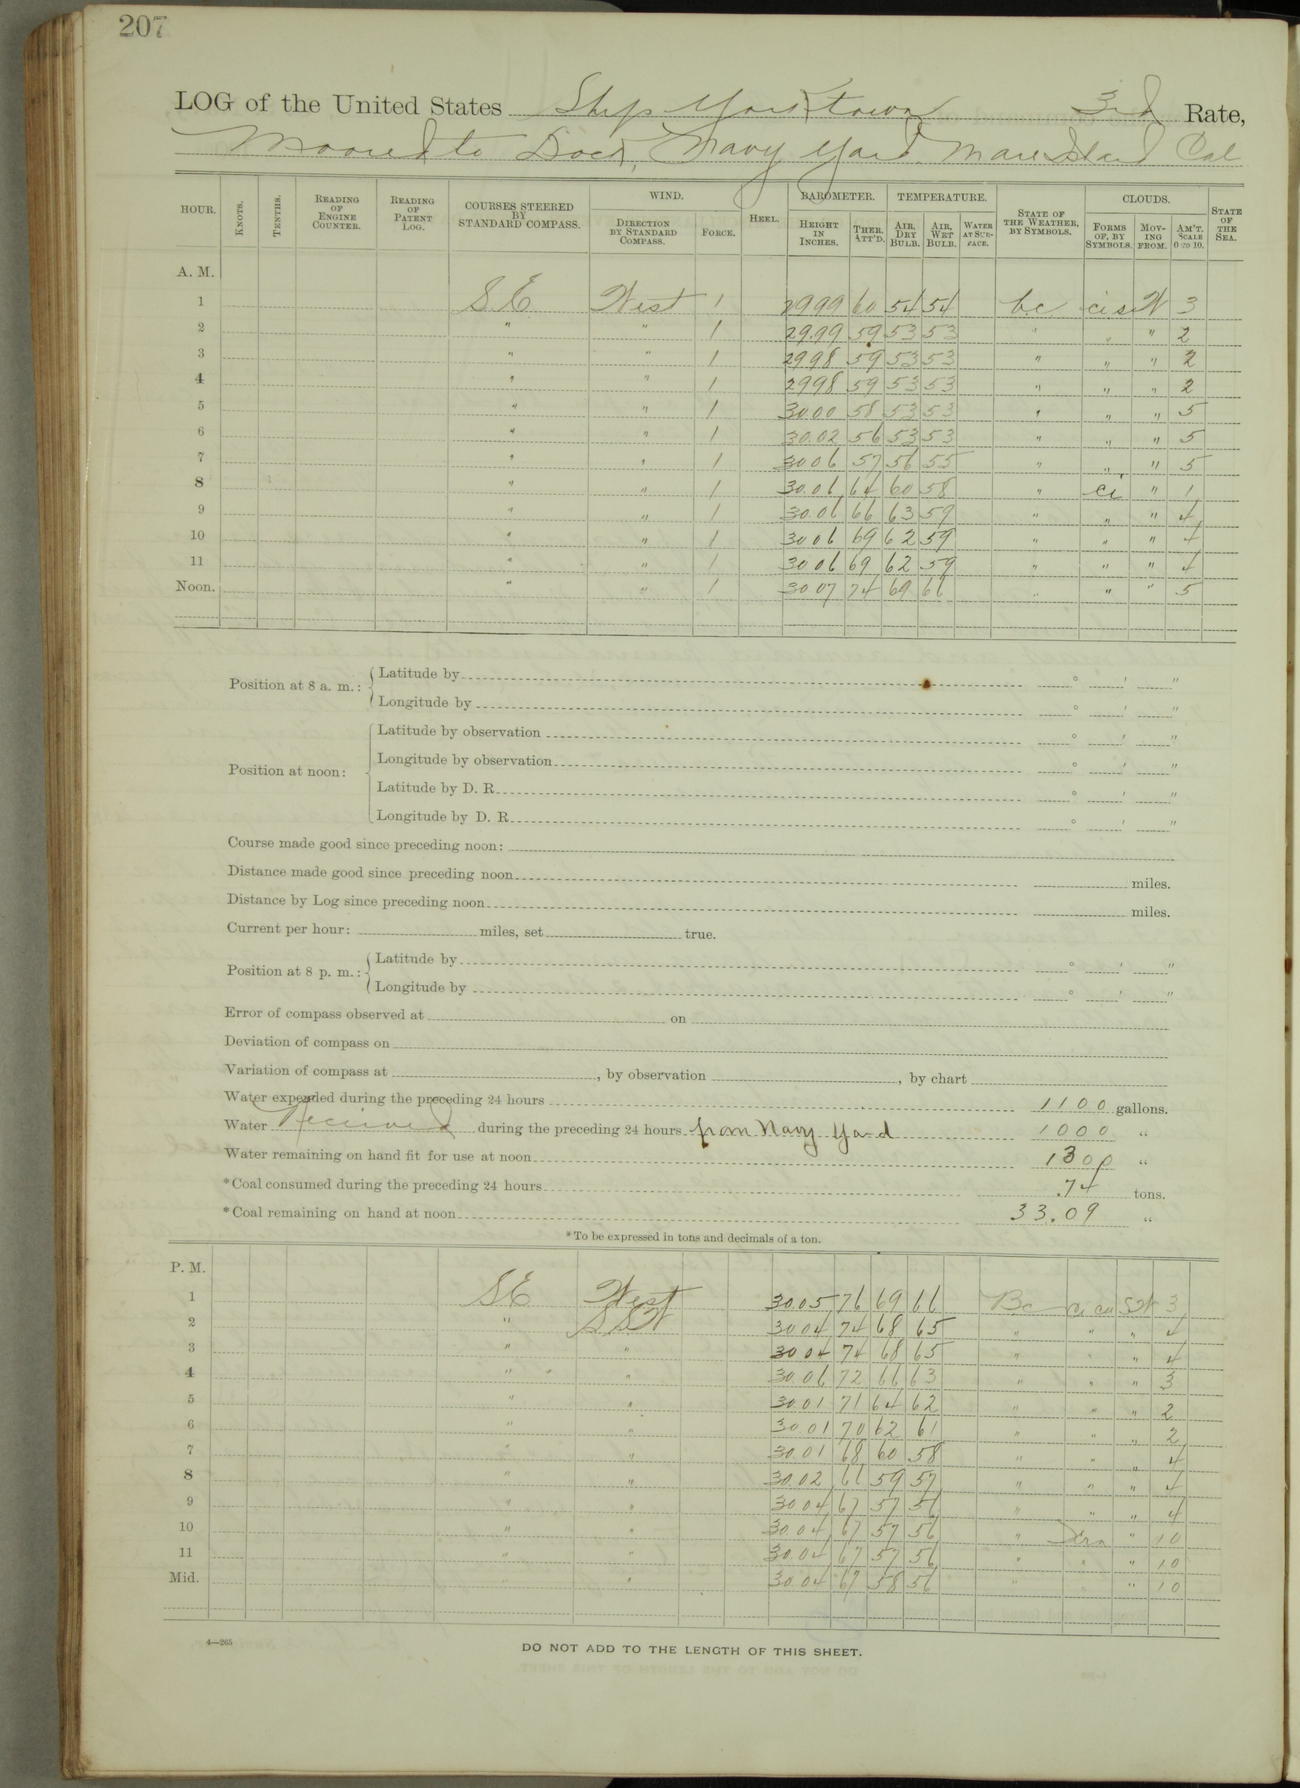 207
LOG of the United States Ship Yorktown 3rd Rate,
Moored to Dock, Navy Yard. Mare Island Cal
HOUR. KNOTS. TENTHS. READING OF ENGINE COUNTER. READING OF PATENT LOG. COURSES STEERED BY STANDARD COMPASS. WIND. DIRECTION BY STANDARD COMPASS. FORCE. HEEL. BAROMETER. HEIGHT IN INCHES. THER. ATT'D. TEMPERATURE. AIR, DRY BULB. AIR, WET BULB. WATER AT SURFACE. STATE OF THE WEATHER, BY SYMBOLS. CLOUDS. FORMS OF, BY SYMBOLS. MOVING FROM. AM'T. SCALE 0 TO 10. STATE OF THE SEA.
A. M.
1 SE West 1 29 99 60 54 54 bc ci s W 3
2 " " 1 29.99 59 53 53 " " " 2
3 " " 1 29 98 59 53 53 " " " 2
4 " " 1 29 98 59 53 53 " " " 2
5 " " 1 30.00 58 53 53 " " " 5
6 " " 1 30.02 56 53 53 " " " 5
7 " " 1 30 06 57 56 55 " " " 5
8 " " 1 30.06 64 60 58 " ci " 1
9 " " 1 30.06 66 63 59 " " " 4
10 " " 1 30 06 69 62 59 " " " 4
11 " " 1 30 06 69 62 59 " " " 4
Noon. " " 1 30 07 74 69 66 " " " 5
Position at 8 a. m.: Latitude by ° ' "
Longitude by ° ' "
Position at noon: Latitude by observation ° ' "
Longitude by observation ° ' "
Latitude by D. R. ° ' "
Longitude by D. R. ° ' "
Course made good since preceding noon:
Distance made good since preceding noon miles.
Distance by Log since preceding noon miles.
Current per hour: miles, set true.
Position at 8 p. m.: Latitude by ° ' "
Longitude by ° ' "
Error of compass observed at on
Deviation of compass on
Variation of compass at , by observation , by chart
Water expended during the preceding 24 hours 1100 gallons.
Water Received during the preceding 24 hours from Navy Yard 1000 "
Water remaining on hand fit for use at noon 1300 "
*Coal consumed during the preceding 24 hours .74 tons.
*Coal remaining on hand at noon 33.09 "
*To be expressed in tons and decimals of a ton.
P. M.
1 SE West 30.05 76 69 66 Bc ci cu SW 3
2 " SSW 30 04 74 68 65 " " " 4
3 " " 30 04 74 68 65 " " " 4
4 " " 30.06 72 66 63 " " " 3
5 " " 30.01 71 64 62 " " " 2
6 " " 30.01 70 62 61 " " " 2
7 " " 30.01 68 60 58 " " " 4
8 " " 30.02 66 59 57 " " " 4
9 " " 30 04 67 57 56 " " " 4
10 " " 30.04 67 57 56 " " 10
11 " " 30.04 67 57 56 " " " 10
Mid. " " 30 04 67 58 56 " " " 10
4—265
DO NOT ADD TO THE LENGTH OF THIS SHEET.